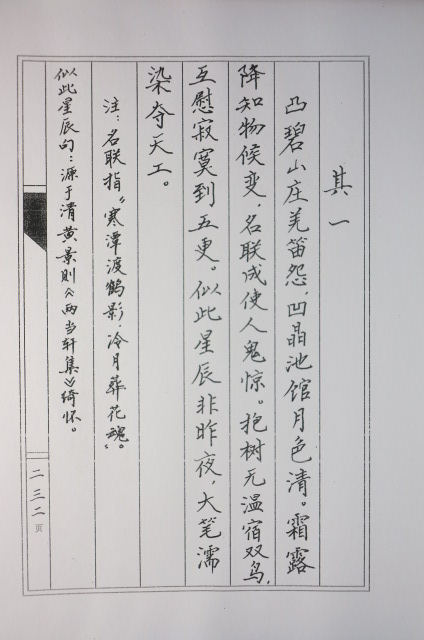 其一
凸碧山庄羌笛怨,凹晶池馆月色清。霜露
降知物候变,名联成使人鬼惊。抱树无温宿双鸟,
互慰寂寞到五更。似此星辰非昨夜,大笔濡
染夺天工。
注:名联指“寒潭渡鹤影,冷月葬花魂”。
似此星辰句:源于清黄景则《两当轩集》绮怀。
二三二页